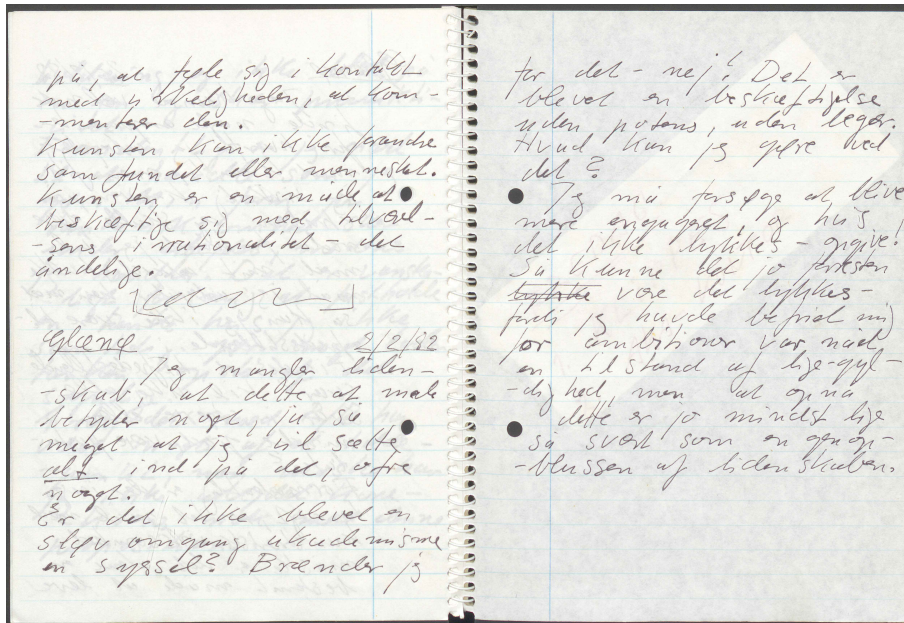 på, at føle sig i kontakt
med virkeligheden, at kom-
-mentere den.
Kunsten kan ikke forandre
samfundet eller mennesket.
Kunsten er en måde at
beskæftige sig med tilvær-
-elsens irrationalitet - det
åndelige.
Glænø 2/2/82
Jeg mangler liden-
-skab, at dette at male
betyder noget, ja så
meget at jeg vil sætte
alt ind på det, ofre
noget.
Er det ikke blevet en
sløv omgang akademisme
en syssel? Brænder jeg
for det - nej! Det er
blevet en beskæftigelse
uden potens, uden leger.
Hvad kan jeg gøre ved
det?
Jeg må forsøge at blive
mere engageret, og hvis
det ikke lykkes - opgive!
Så kunne det jo forresten
lykke være det lykkes-
fordi jeg havde befriet mig
for ambitioner var nået
en tilstand af lige-gyl-
-dighed, men at opnå
dette er jo mindst lige
så svært som en genop-
-blussen af lidenskaben.